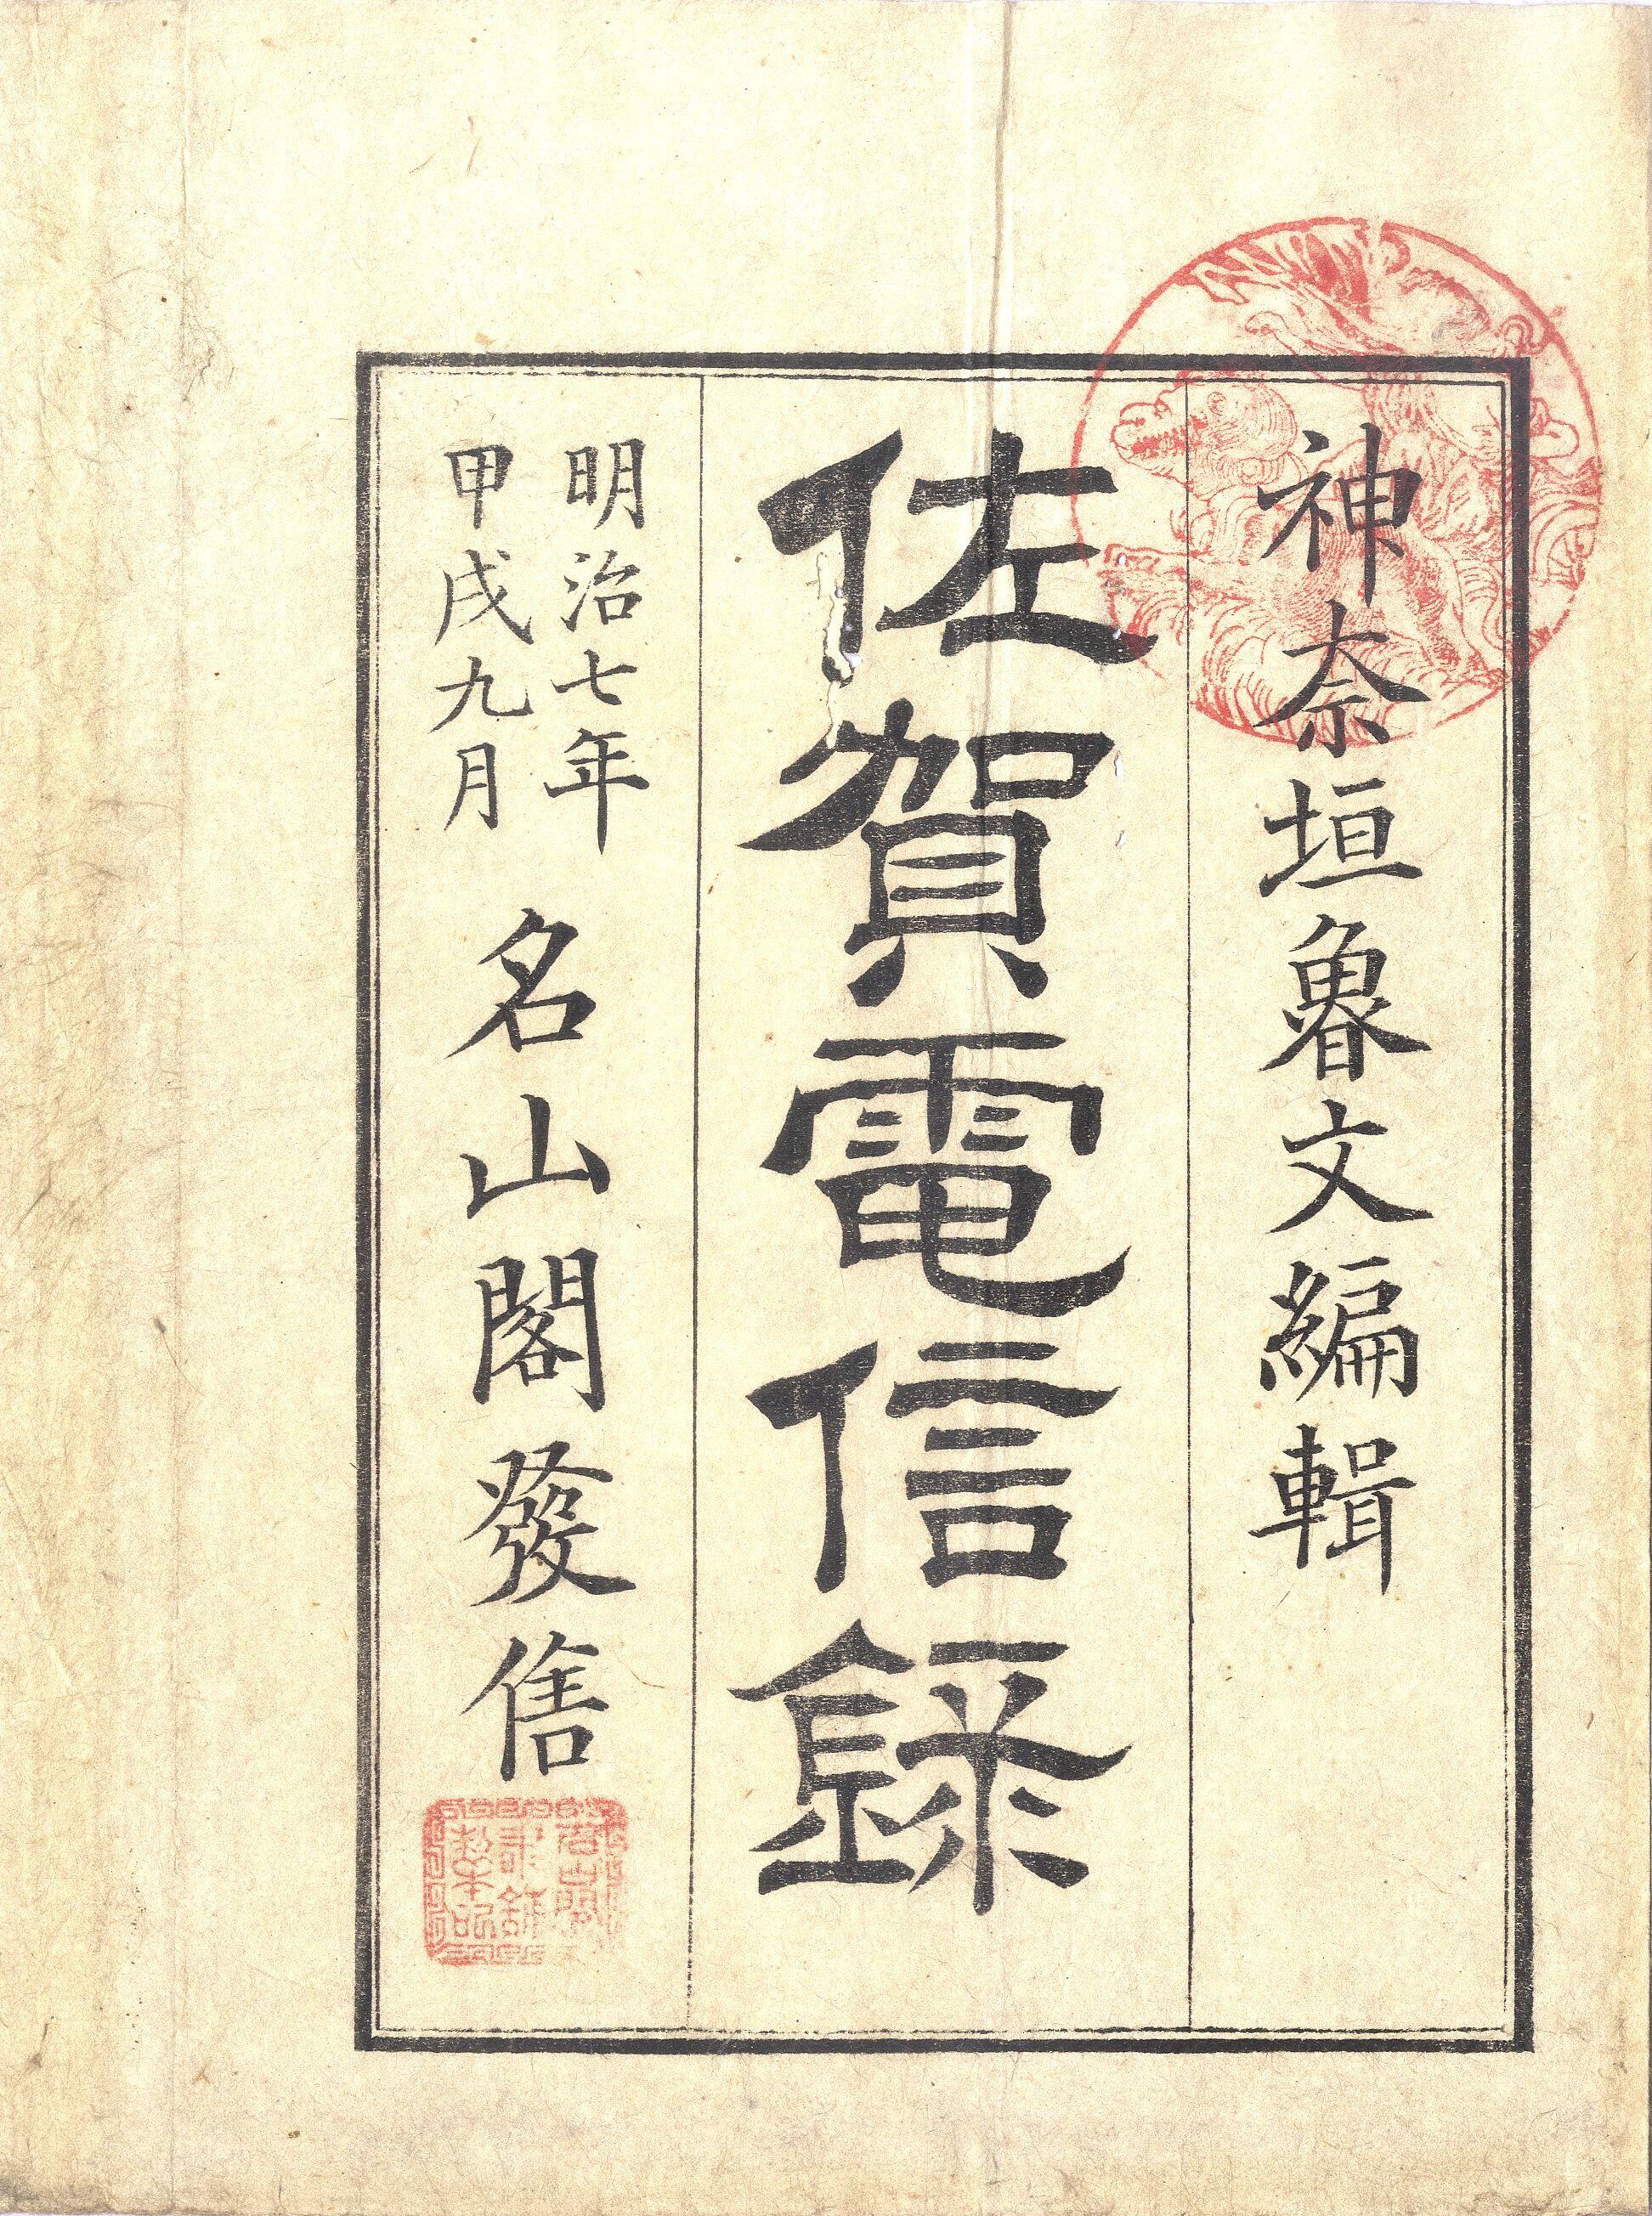 神奈垣魯文編輯
佐賀電信録
明治七年
甲戌九月
名山閣發售